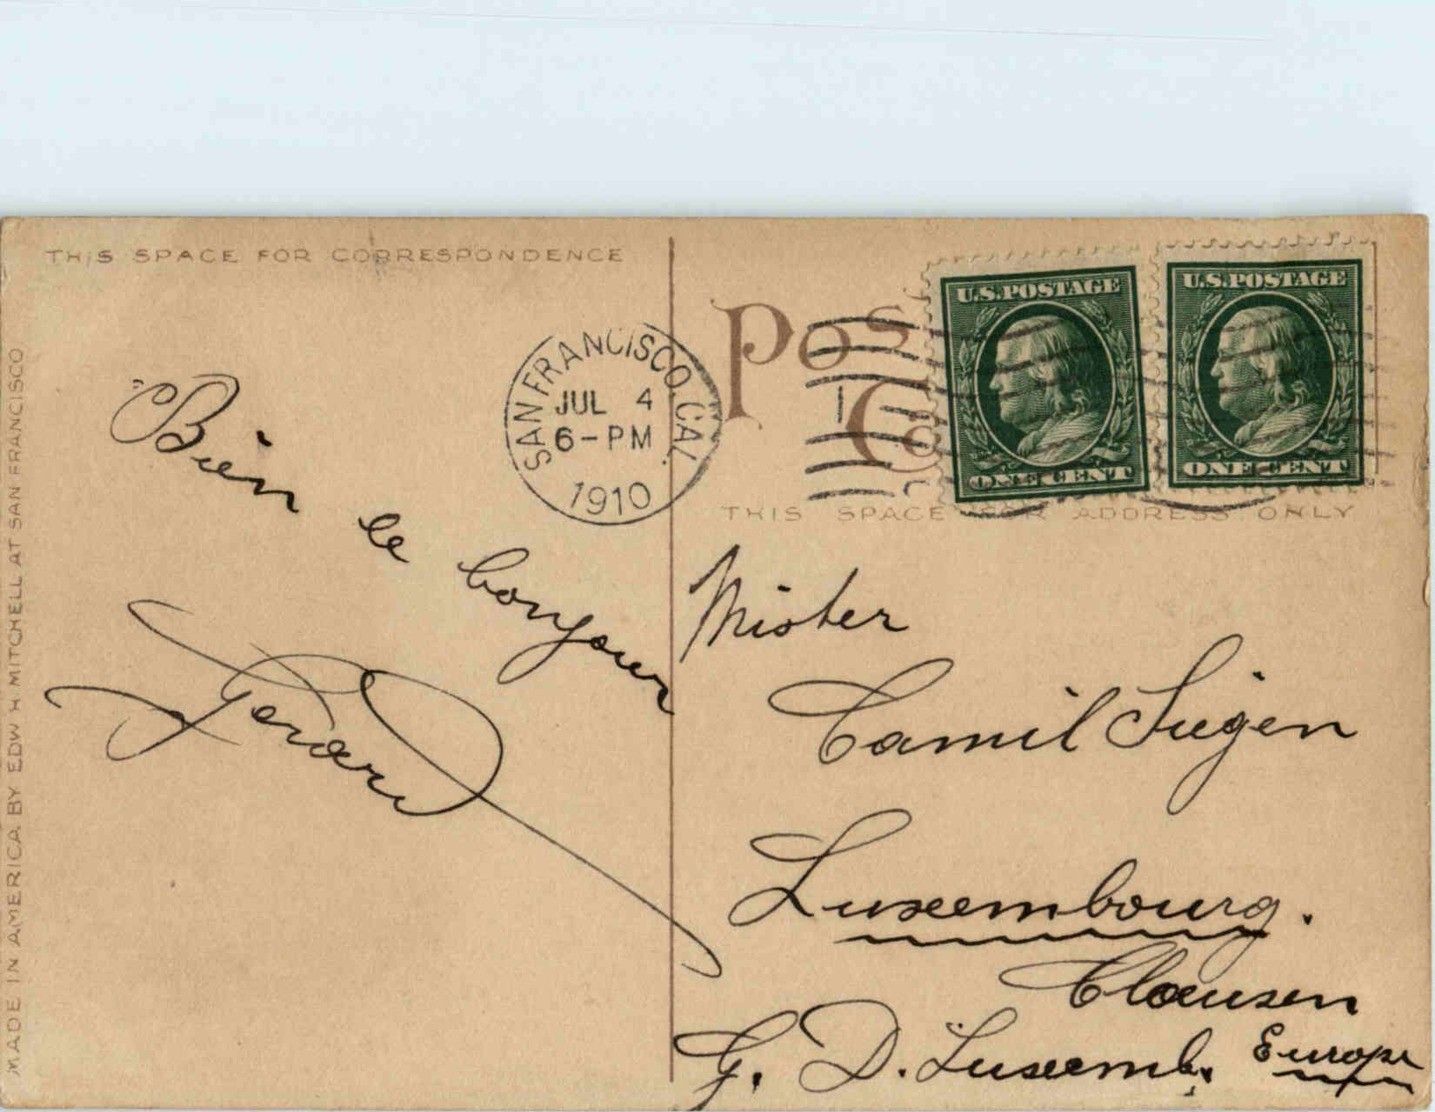 THIS SPACE FOR CORRESPONDENCE
MADE IN AMERICA BY EDW H MITCHELL AT SAN FRANCISCO
Bien le bonjour
SAN FRANCISCO, CAL.
JUL 4
6-PM
1910
Pos
Ca
U.S. POSTAGE
ONE CENT
U.S. POSTAGE
ONE CENT
THIS SPACE FOR ADDRESS ONLY
Mister
Camil Siegen
Luxembourg.
Clausen
G. D. Luxemb. Europe